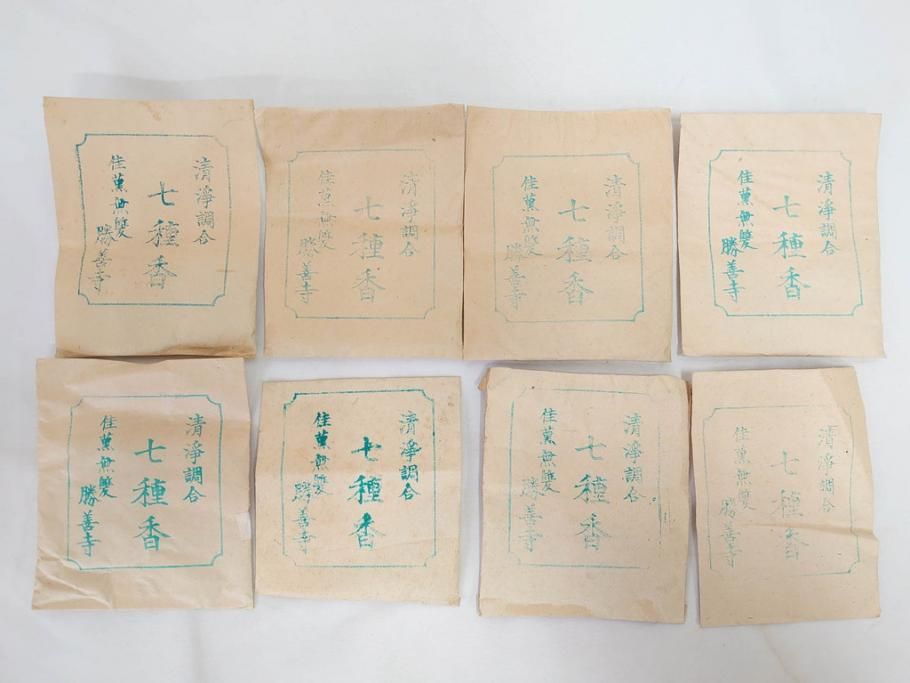 清淨調合
七種香
佳薫無雙
勝善寺
清淨調合
七種香
佳薫無雙
勝善寺
清淨調合
七種香
佳薫無雙
勝善寺
清淨調合
七種香
佳薫無雙
勝善寺
清淨調合
七種香
佳薫無雙
勝善寺
清淨調合
七種香
佳薫無雙
勝善寺
清淨調合
七種香
佳薫無雙
勝善寺
清淨調合
七種香
佳薫無雙
勝善寺